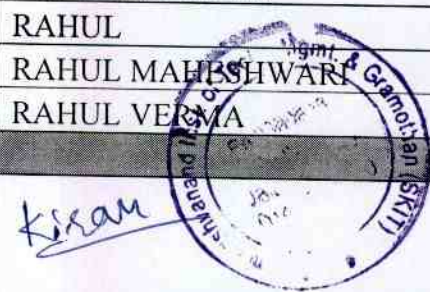 RAHUL
RAHUL MAHESHWARI
RAHUL VERMA
Mgmt. & Gramothan (SKIT)
Kiran